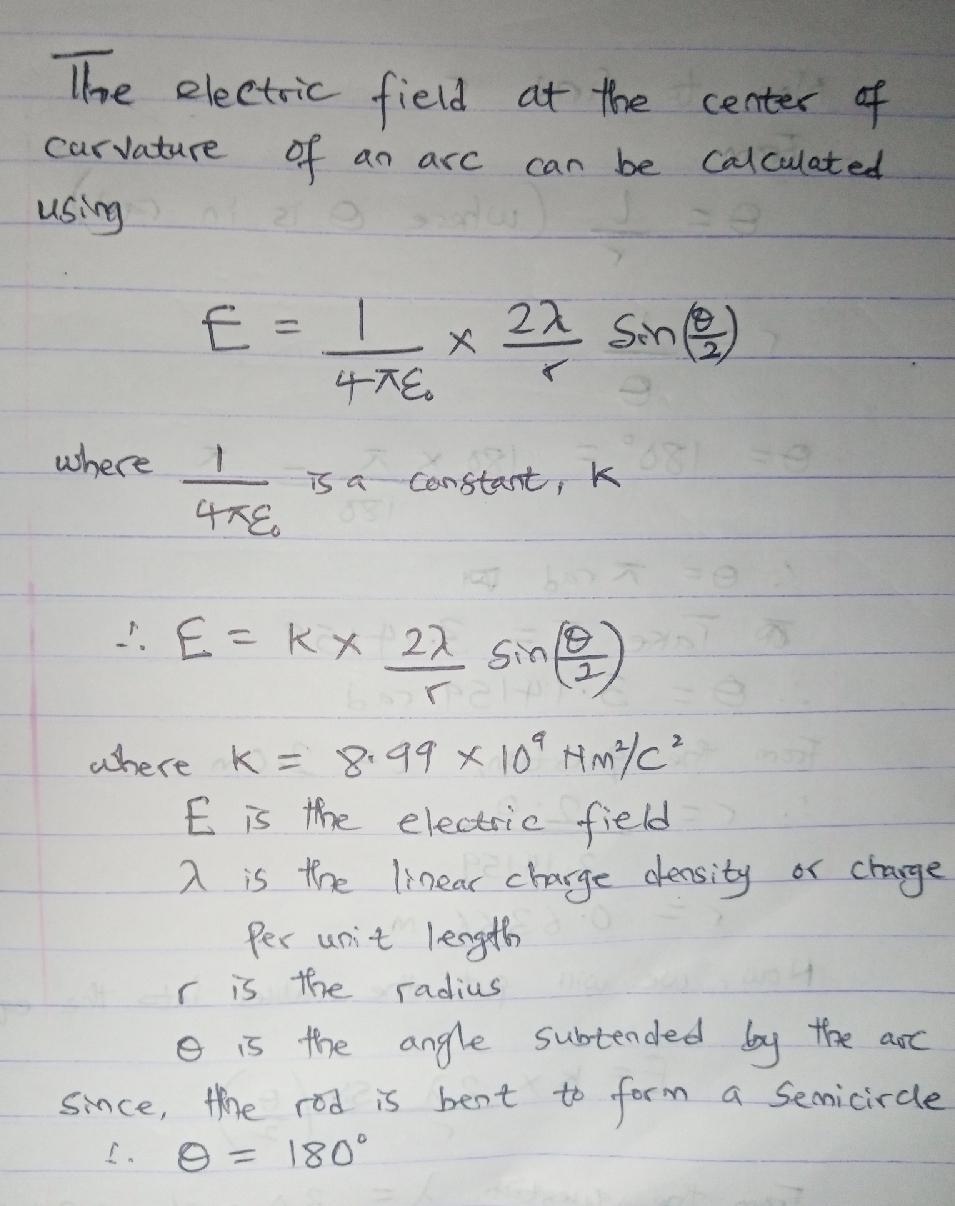 The electric field at the center of
curvature of an arc can be calculated
using
E = 1/4πε₀ × 2λ/r Sin(θ/2)
where 1/4πε₀ is a constant, K
∴ E = K × 2λ/r sin(θ/2)
where K = 8.99 × 10⁹ Nm²/C²
E is the electric field
λ is the linear charge density or charge
per unit length
r is the radius
θ is the angle subtended by the arc
since, the rod is bent to form a Semicircle
∴ θ = 180°